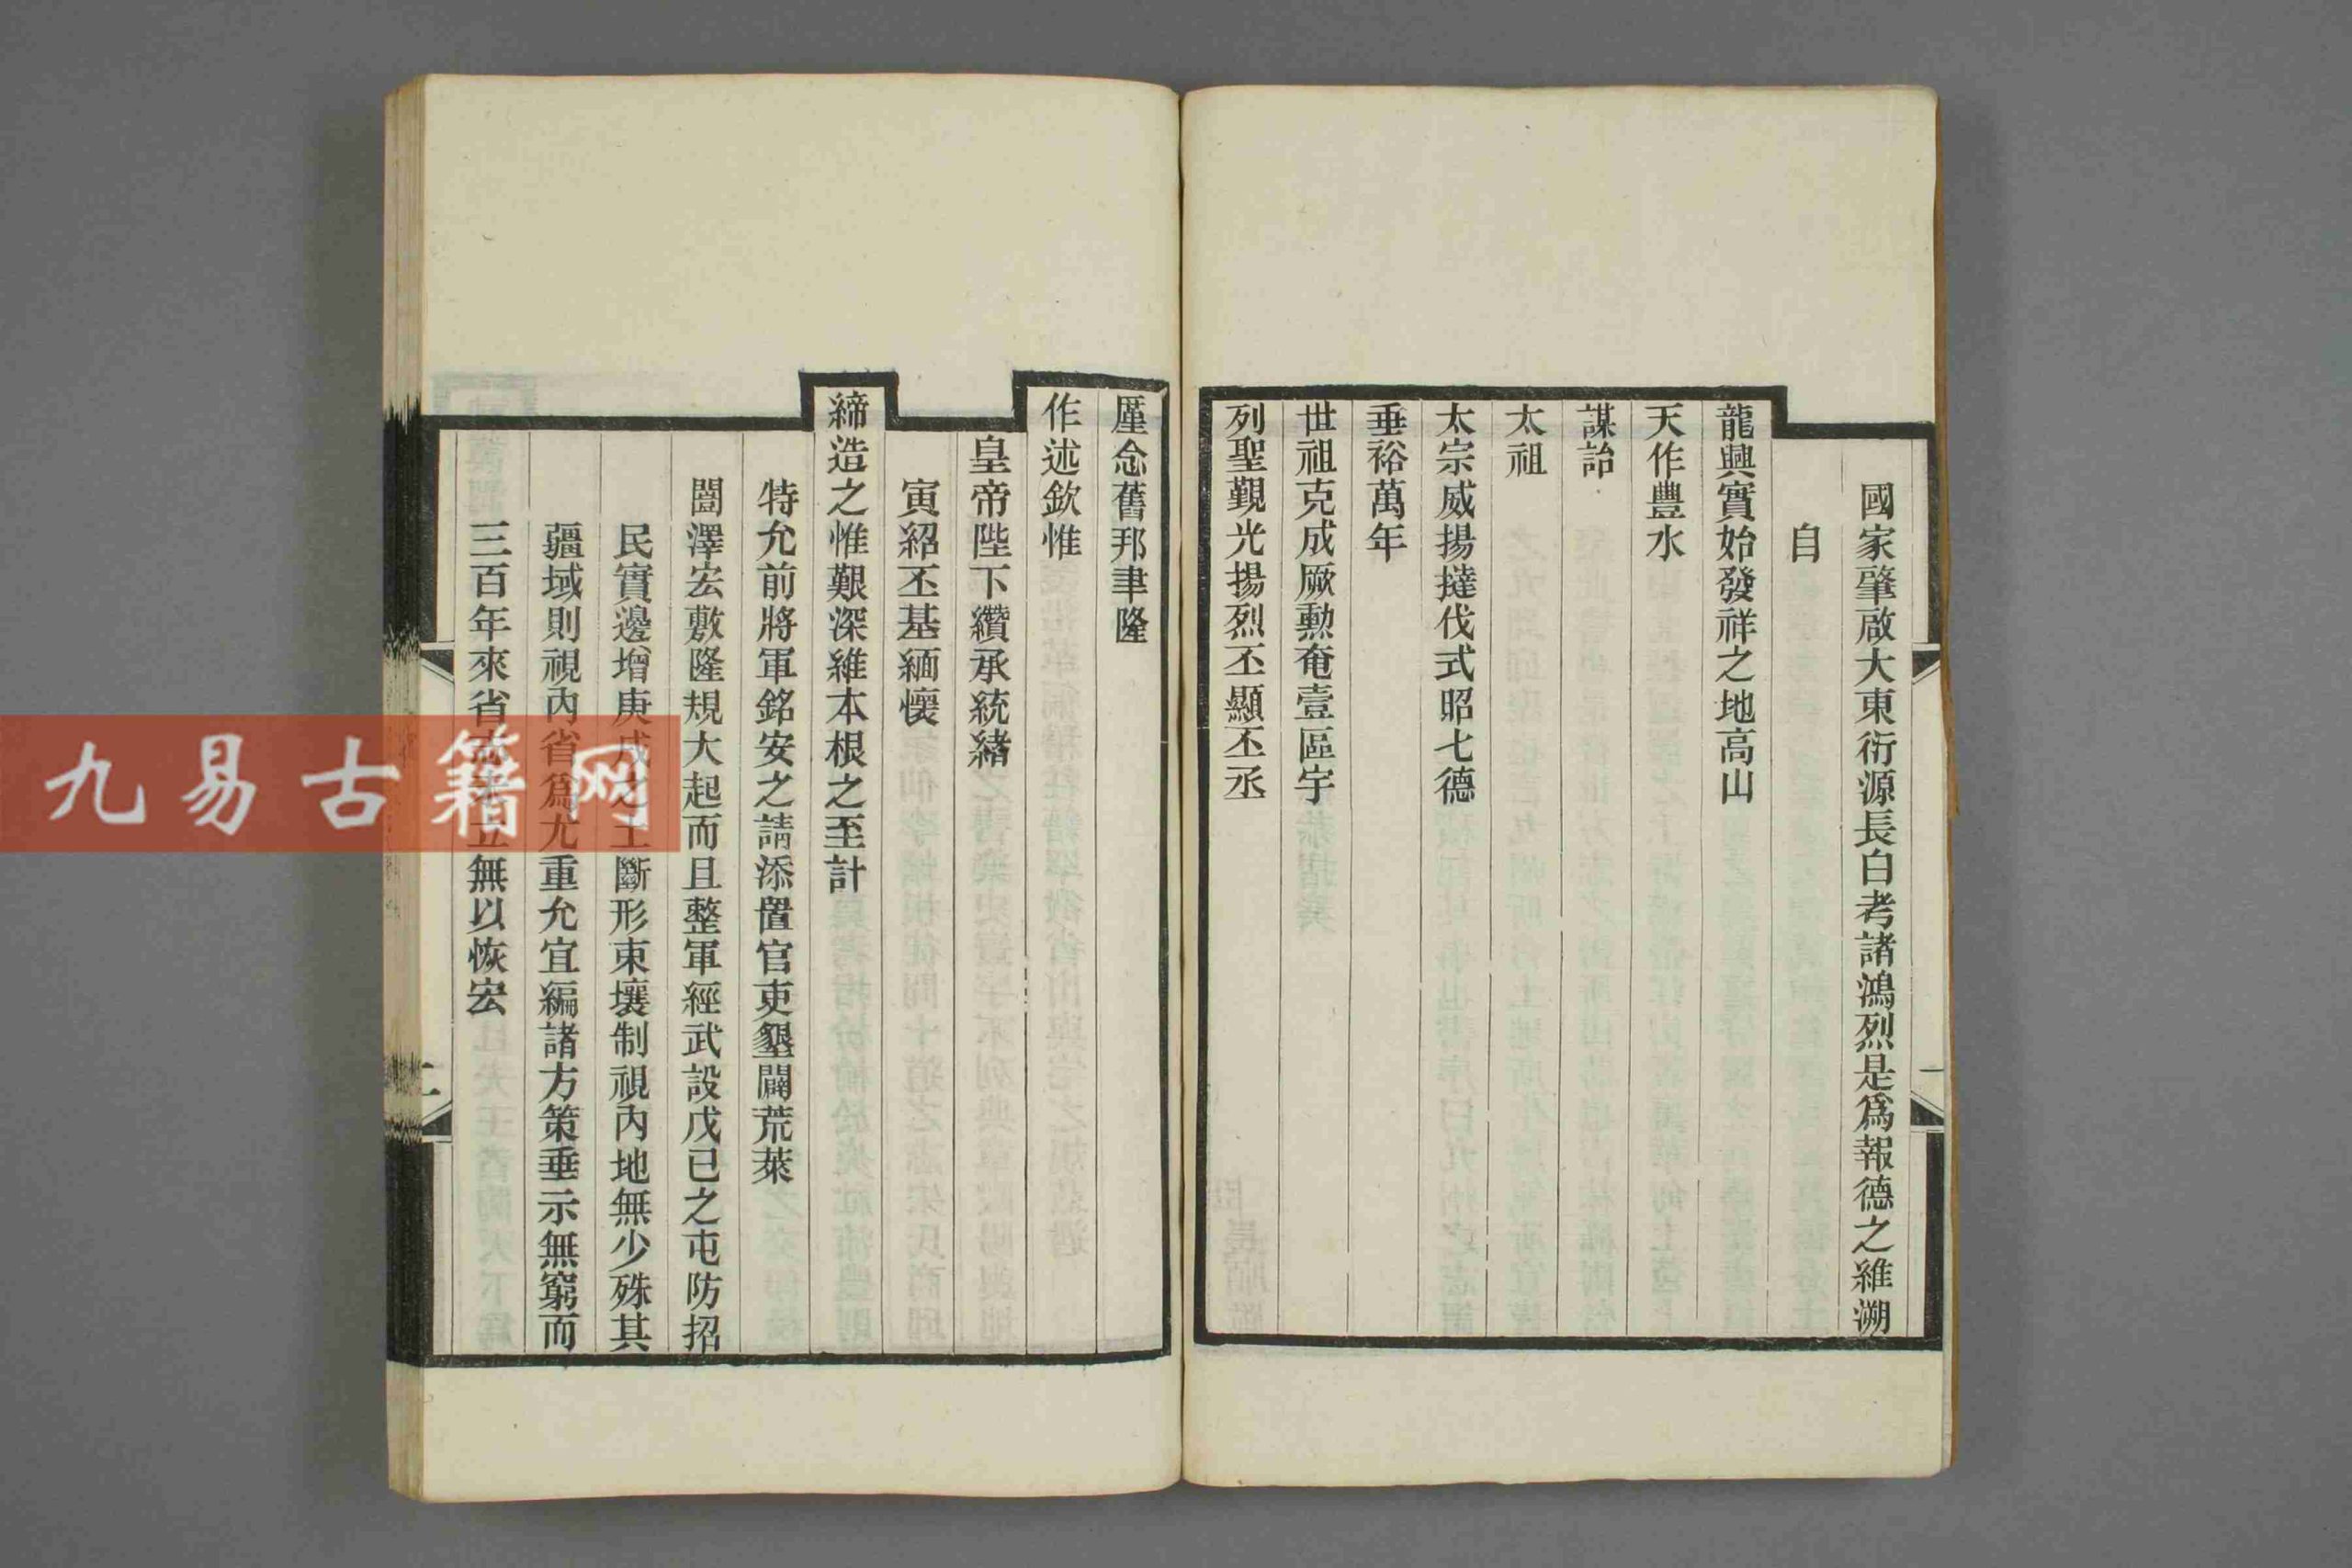 國家肇啟大東衍源長白考諸鴻烈是爲報德之維溯
自
龍興實始發祥之地高山
天作豐水
謀詒
太祖
太宗威揚撻伐式昭七德
垂裕萬年
世祖克成厥勲奄壹區宇
列聖覲光揚烈丕顯丕丞
一
厪念舊邦聿隆
作述欽惟
皇帝陛下纘承統緒
寅紹丕基緬懷
締造之惟艱深維本根之至計
特允前將軍銘安之請添置官吏墾闢荒萊
闓澤宏敷隆規大起而且整軍經武設戊已之屯防招
民實邊增庚戍之工斷形東壤制視內地無少殊其
疆域則視內省爲尤重允宜編諸方策垂示無窮而
三百年來省志未立無以恢宏
二
九易古籍网